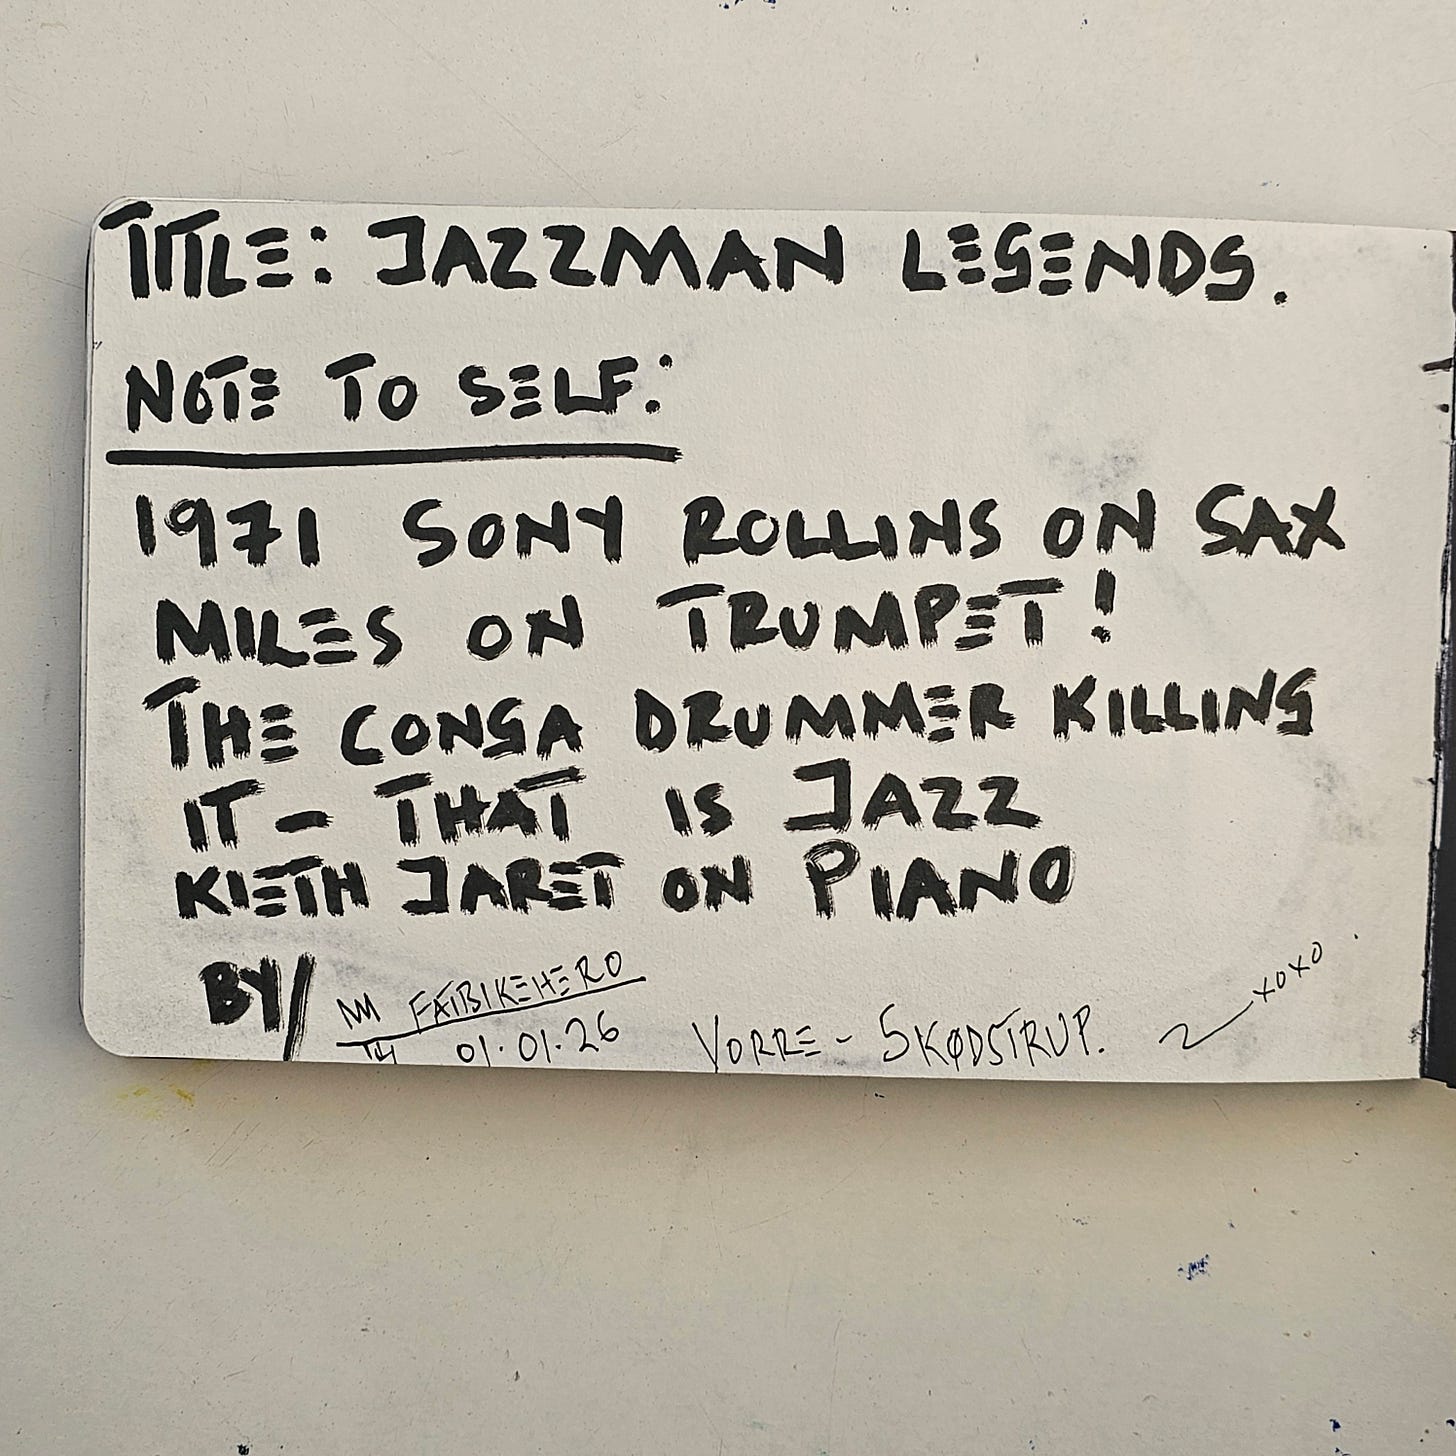 TITLE: JAZZMAN LEGENDS.
NOTE TO SELF:
1971 SONY ROLLINS ON SAX
MILES ON TRUMPET!
THE CONGA DRUMMER KILLING
IT - THAT IS JAZZ
KIETH JARET ON PIANO
BY/ FATBIKEHERO
01.01.26 VORRE - SKØDSTRUP.
XOXO